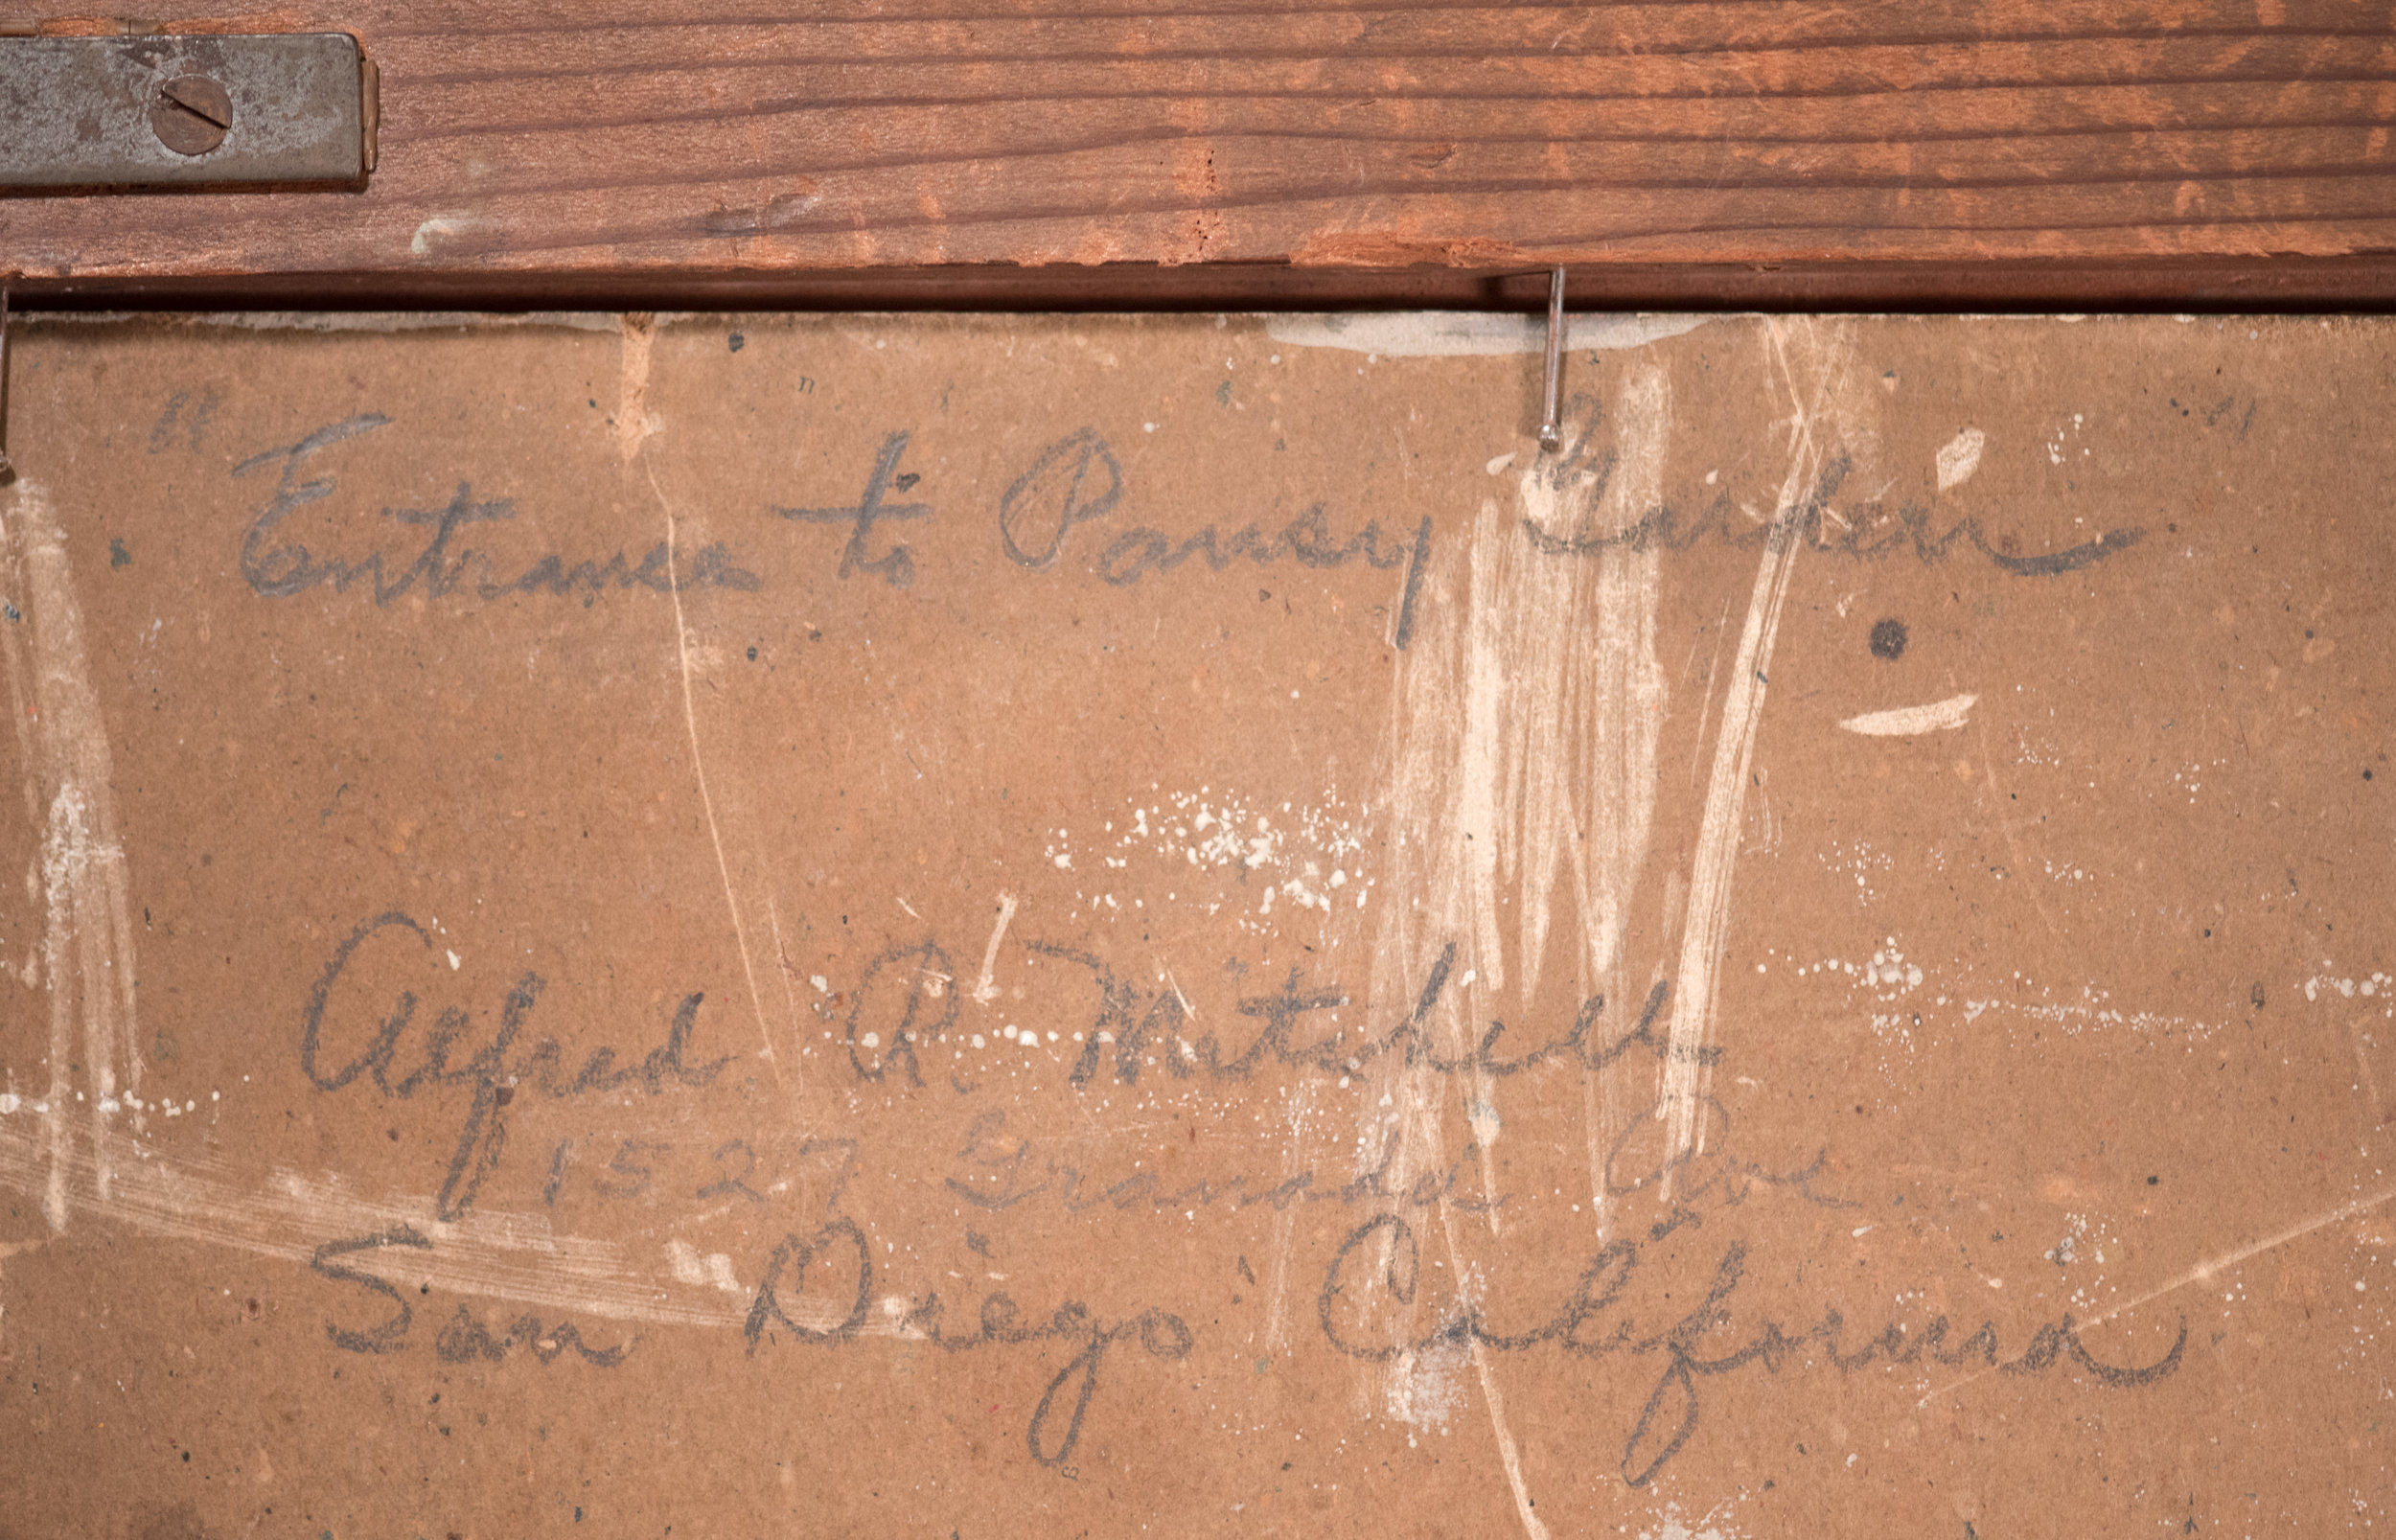 "Entrance to Pansy Garden"
Alfred R. Mitchell
1527 Granada Ave
San Diego California